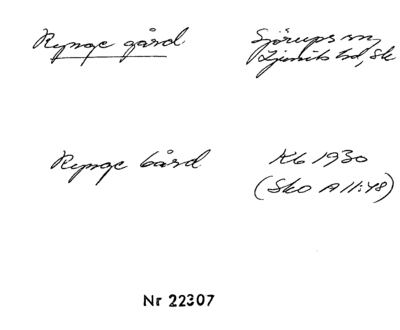 Rynge gård
Sjörups sn,
Ljunits hd, Sk
Rynge bård
Kb 1930
(Sko A II:48)
Nr 22307